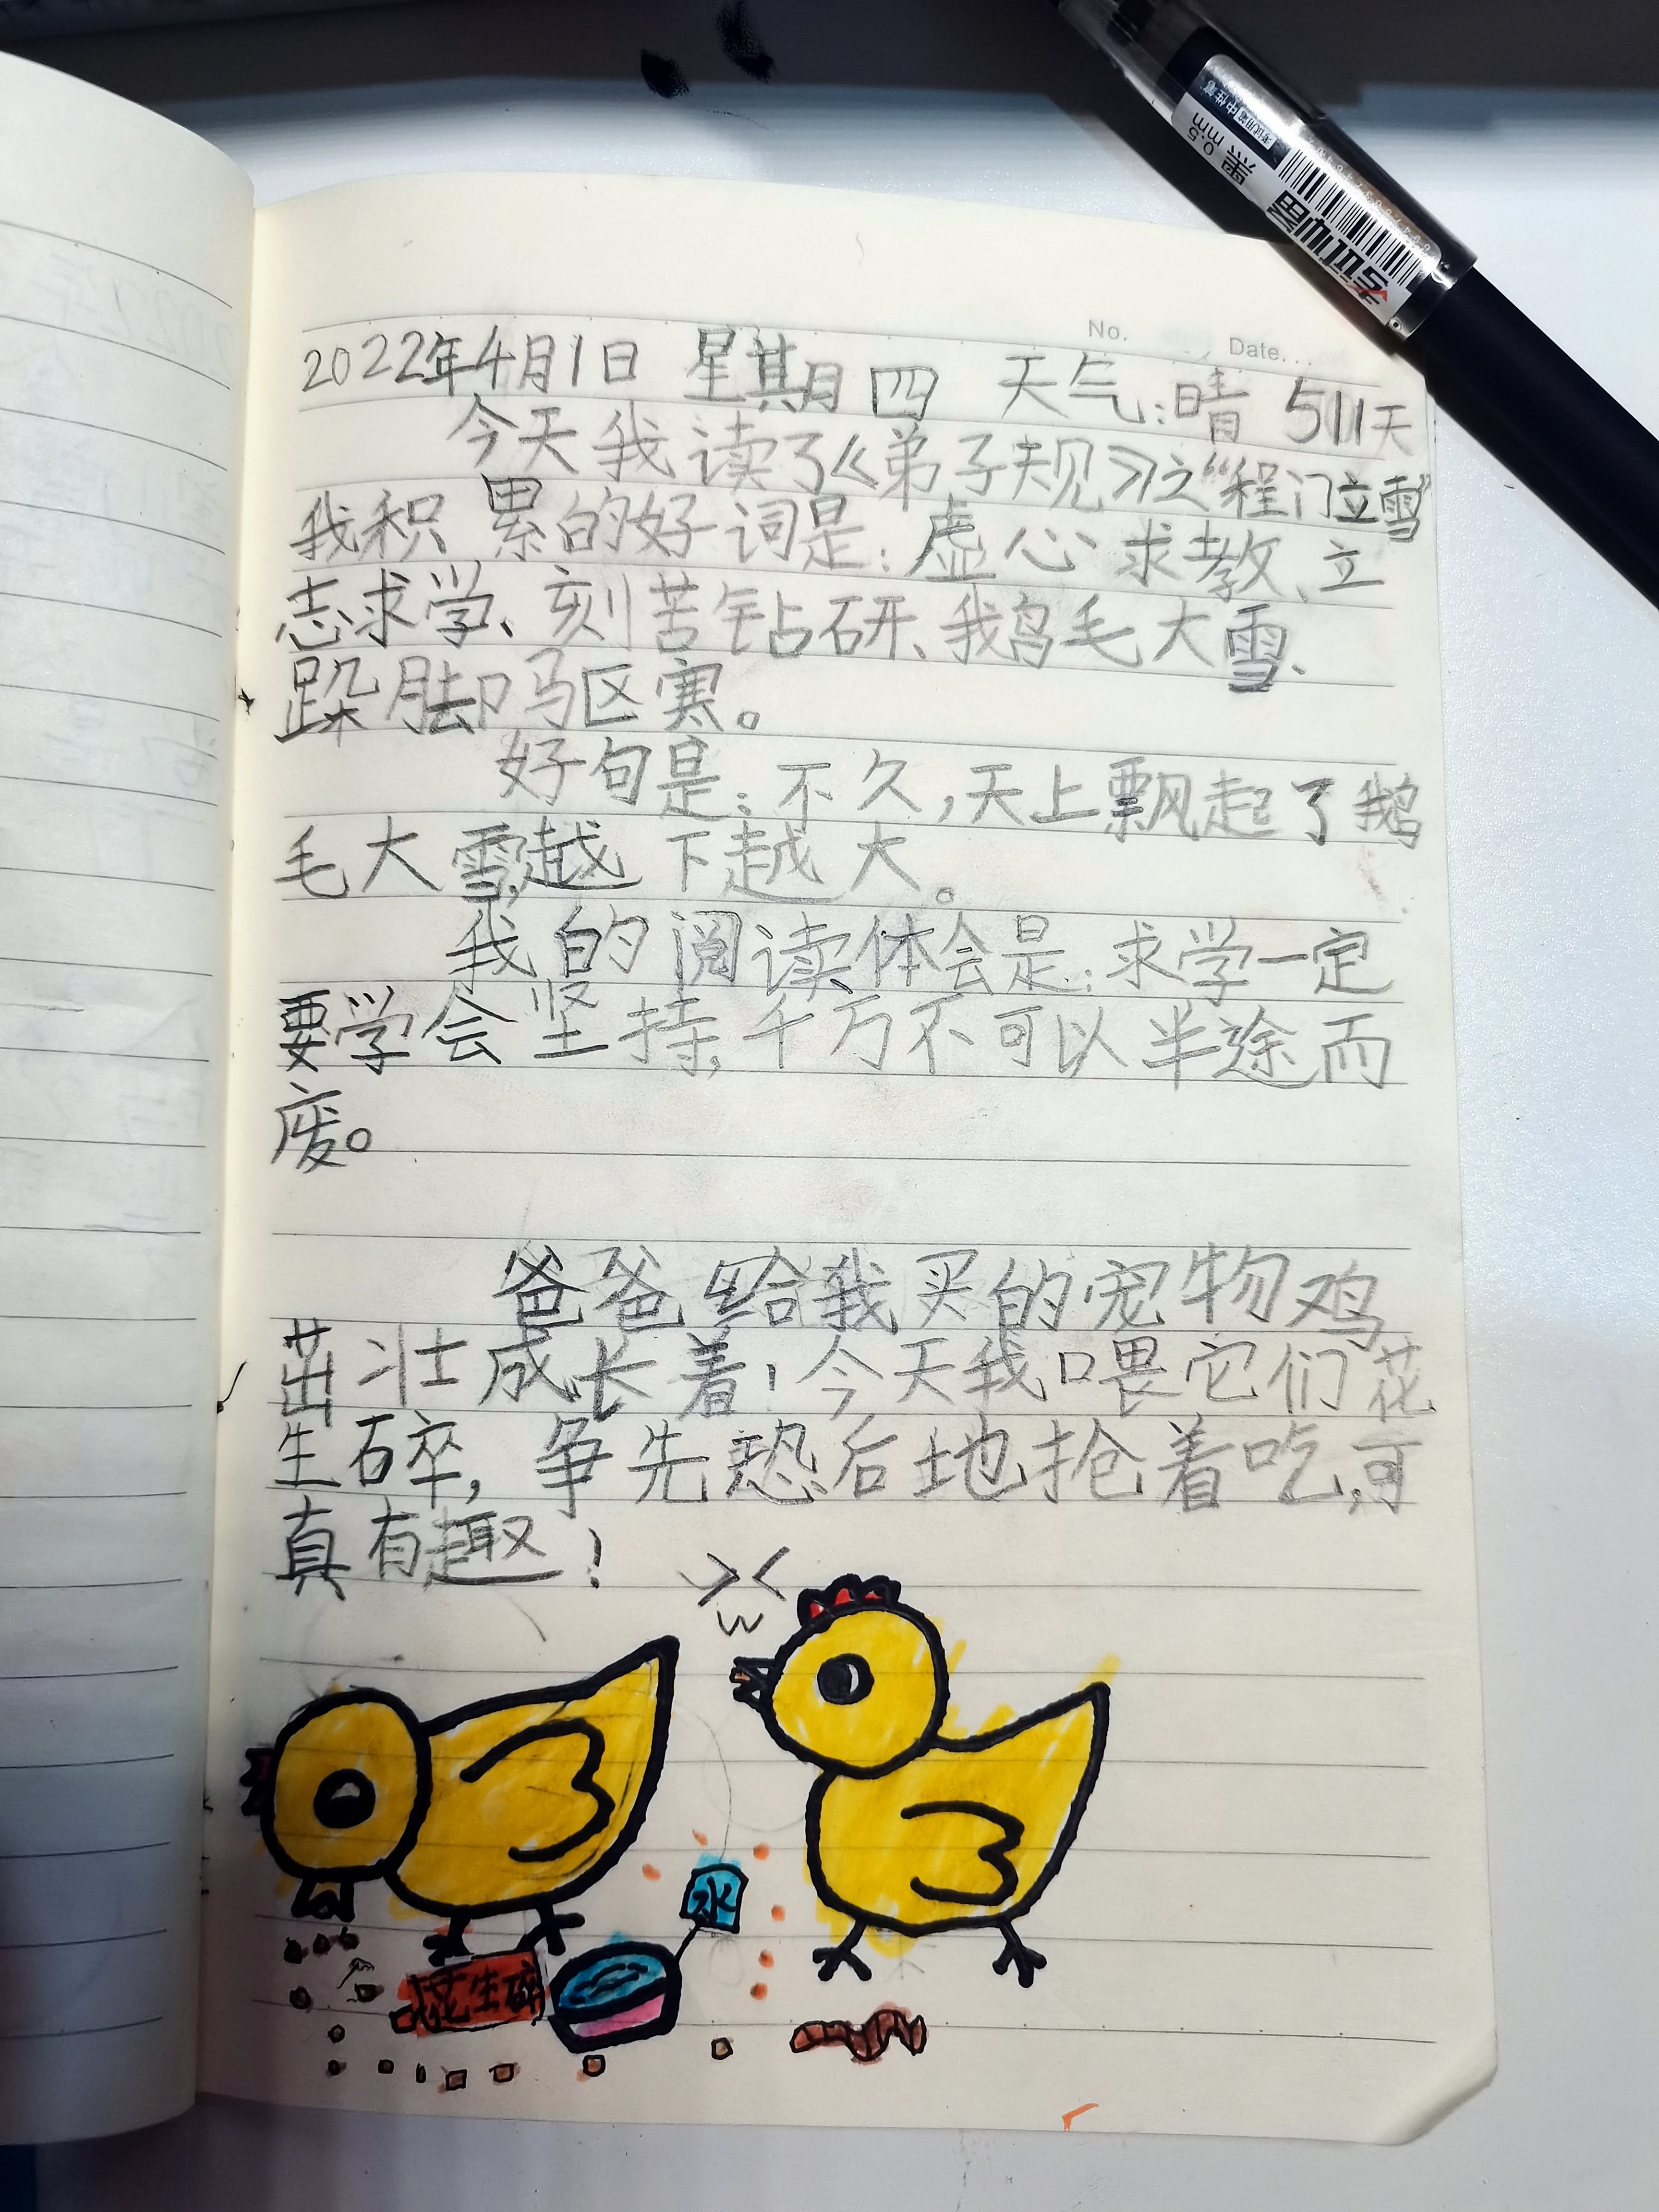 考试用笔中性笔
0.5mm
黑
No.
Date.
2022年4月1日 星期四 天气:晴 511天
今天我读了《弟子规》之“程门立雪”
我积累的好词是:虚心求教、立
志求学、刻苦钻研、鹅毛大雪、
跺脚驱寒。
好句是:不久,天上飘起了鹅
毛大雪,越下越大。
我的阅读体会是:求学一定
要学会坚持,千万不可以半途而
废。
爸爸给我买的宠物鸡
茁壮成长着!今天我喂它们花
生碎,争先恐后地抢着吃,可
真有趣!
水
花生碎